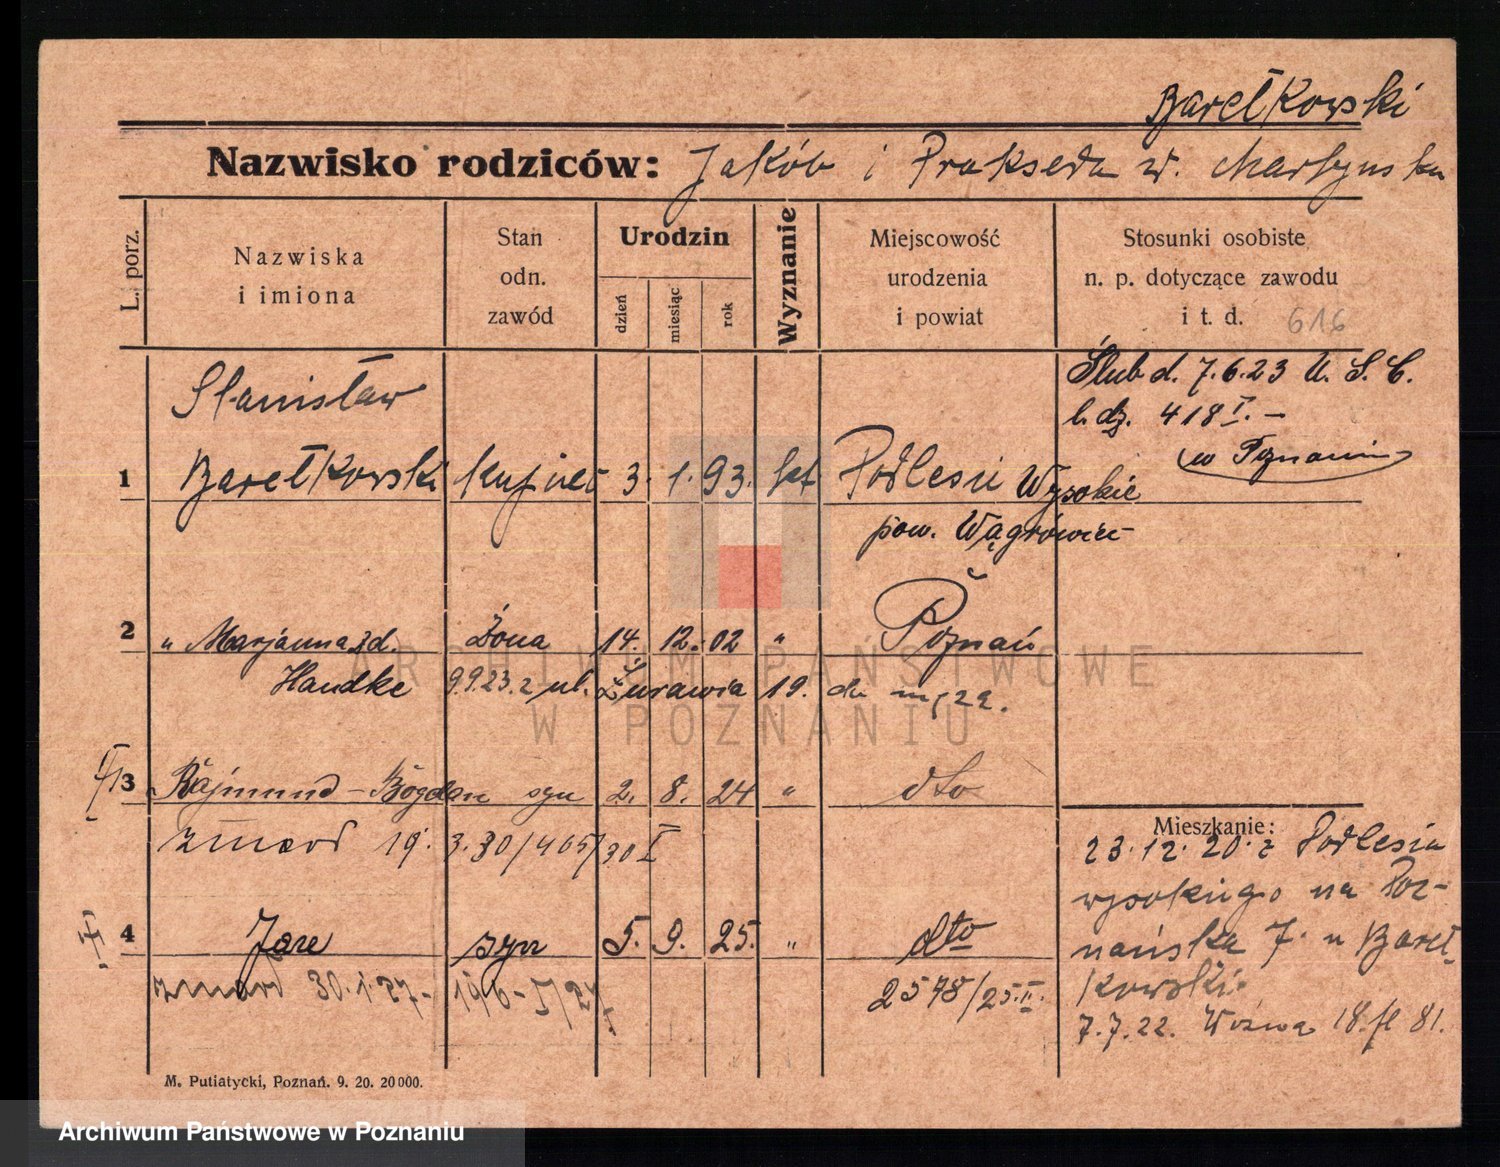 Barełkowski
Nazwisko rodziców: Jakób i Prakseda
L. porz.
Nazwiska
i imiona
Stan
odn.
zawód
Urodzin
dzień
miesiąc
rok
Wyznanie
Miejscowość
urodzenia
i powiat
Stosunki osobiste
n. p. dotyczące zawodu
i t. d. 616
Ślub d. 7.6.23 U. S. C.
l. dz. 418 I. –
w Poznaniu
Stanisław
1 Barełkowski kupiec 3. 1. 93. kat Podlesie Wysokie
pow. Wągrówiec
2 " Marjanna zd. Żona 14. 12. 02 " Poznań
Handke 9.9.23. z ul. Żurawia 19.
3 Rajmund – Bogdan syn 2. 8. 24 " dto
zmarł 19. 3.30/465/30 I
4 syn 5. 9. 25. " dto
zmarł 30.1.27-
2578/25.II.
Mieszkanie:
23.12.20. z Podlesia
wysokiego na Poz-
nańska 7. u Bareł-
kowski.
7.7.22. Woźna 18. 81.
M. Putiatycki, Poznań. 9. 20. 20 000.
ARCHIWUM PAŃSTWOWE
W POZNANIU
Archiwum Państwowe w Poznaniu